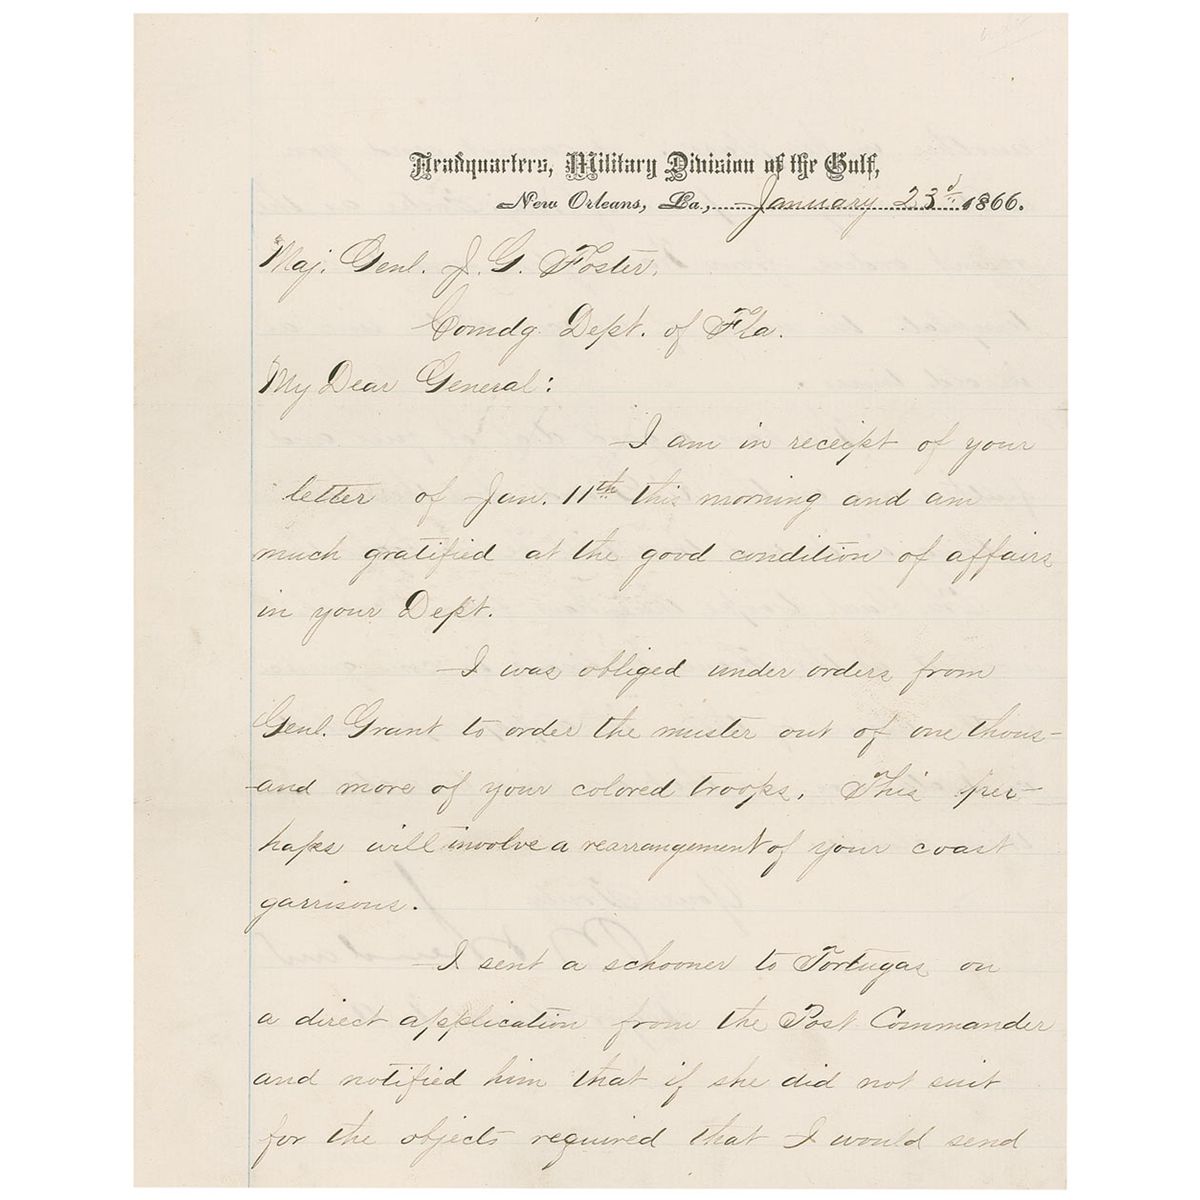 Headquarters, Military Division of the Gulf,
New Orleans, La., January 23d 1866.
Maj. Genl. J. G. Foster,
Comdg. Dept. of Fla.
My Dear General:
I am in receipt of your
letter of Jan. 11th this morning and am
much gratified at the good condition of affairs
in your Dept.
I was obliged under orders from
Genl. Grant to order the muster out of one thous-
and more of your colored troops. This per-
haps will involve a rearrangement of your coast
garrisons.
I sent a schooner to Tortugas on
a direct application from the Post Commander
and notified him that if she did not suit
for the objects required that I would send